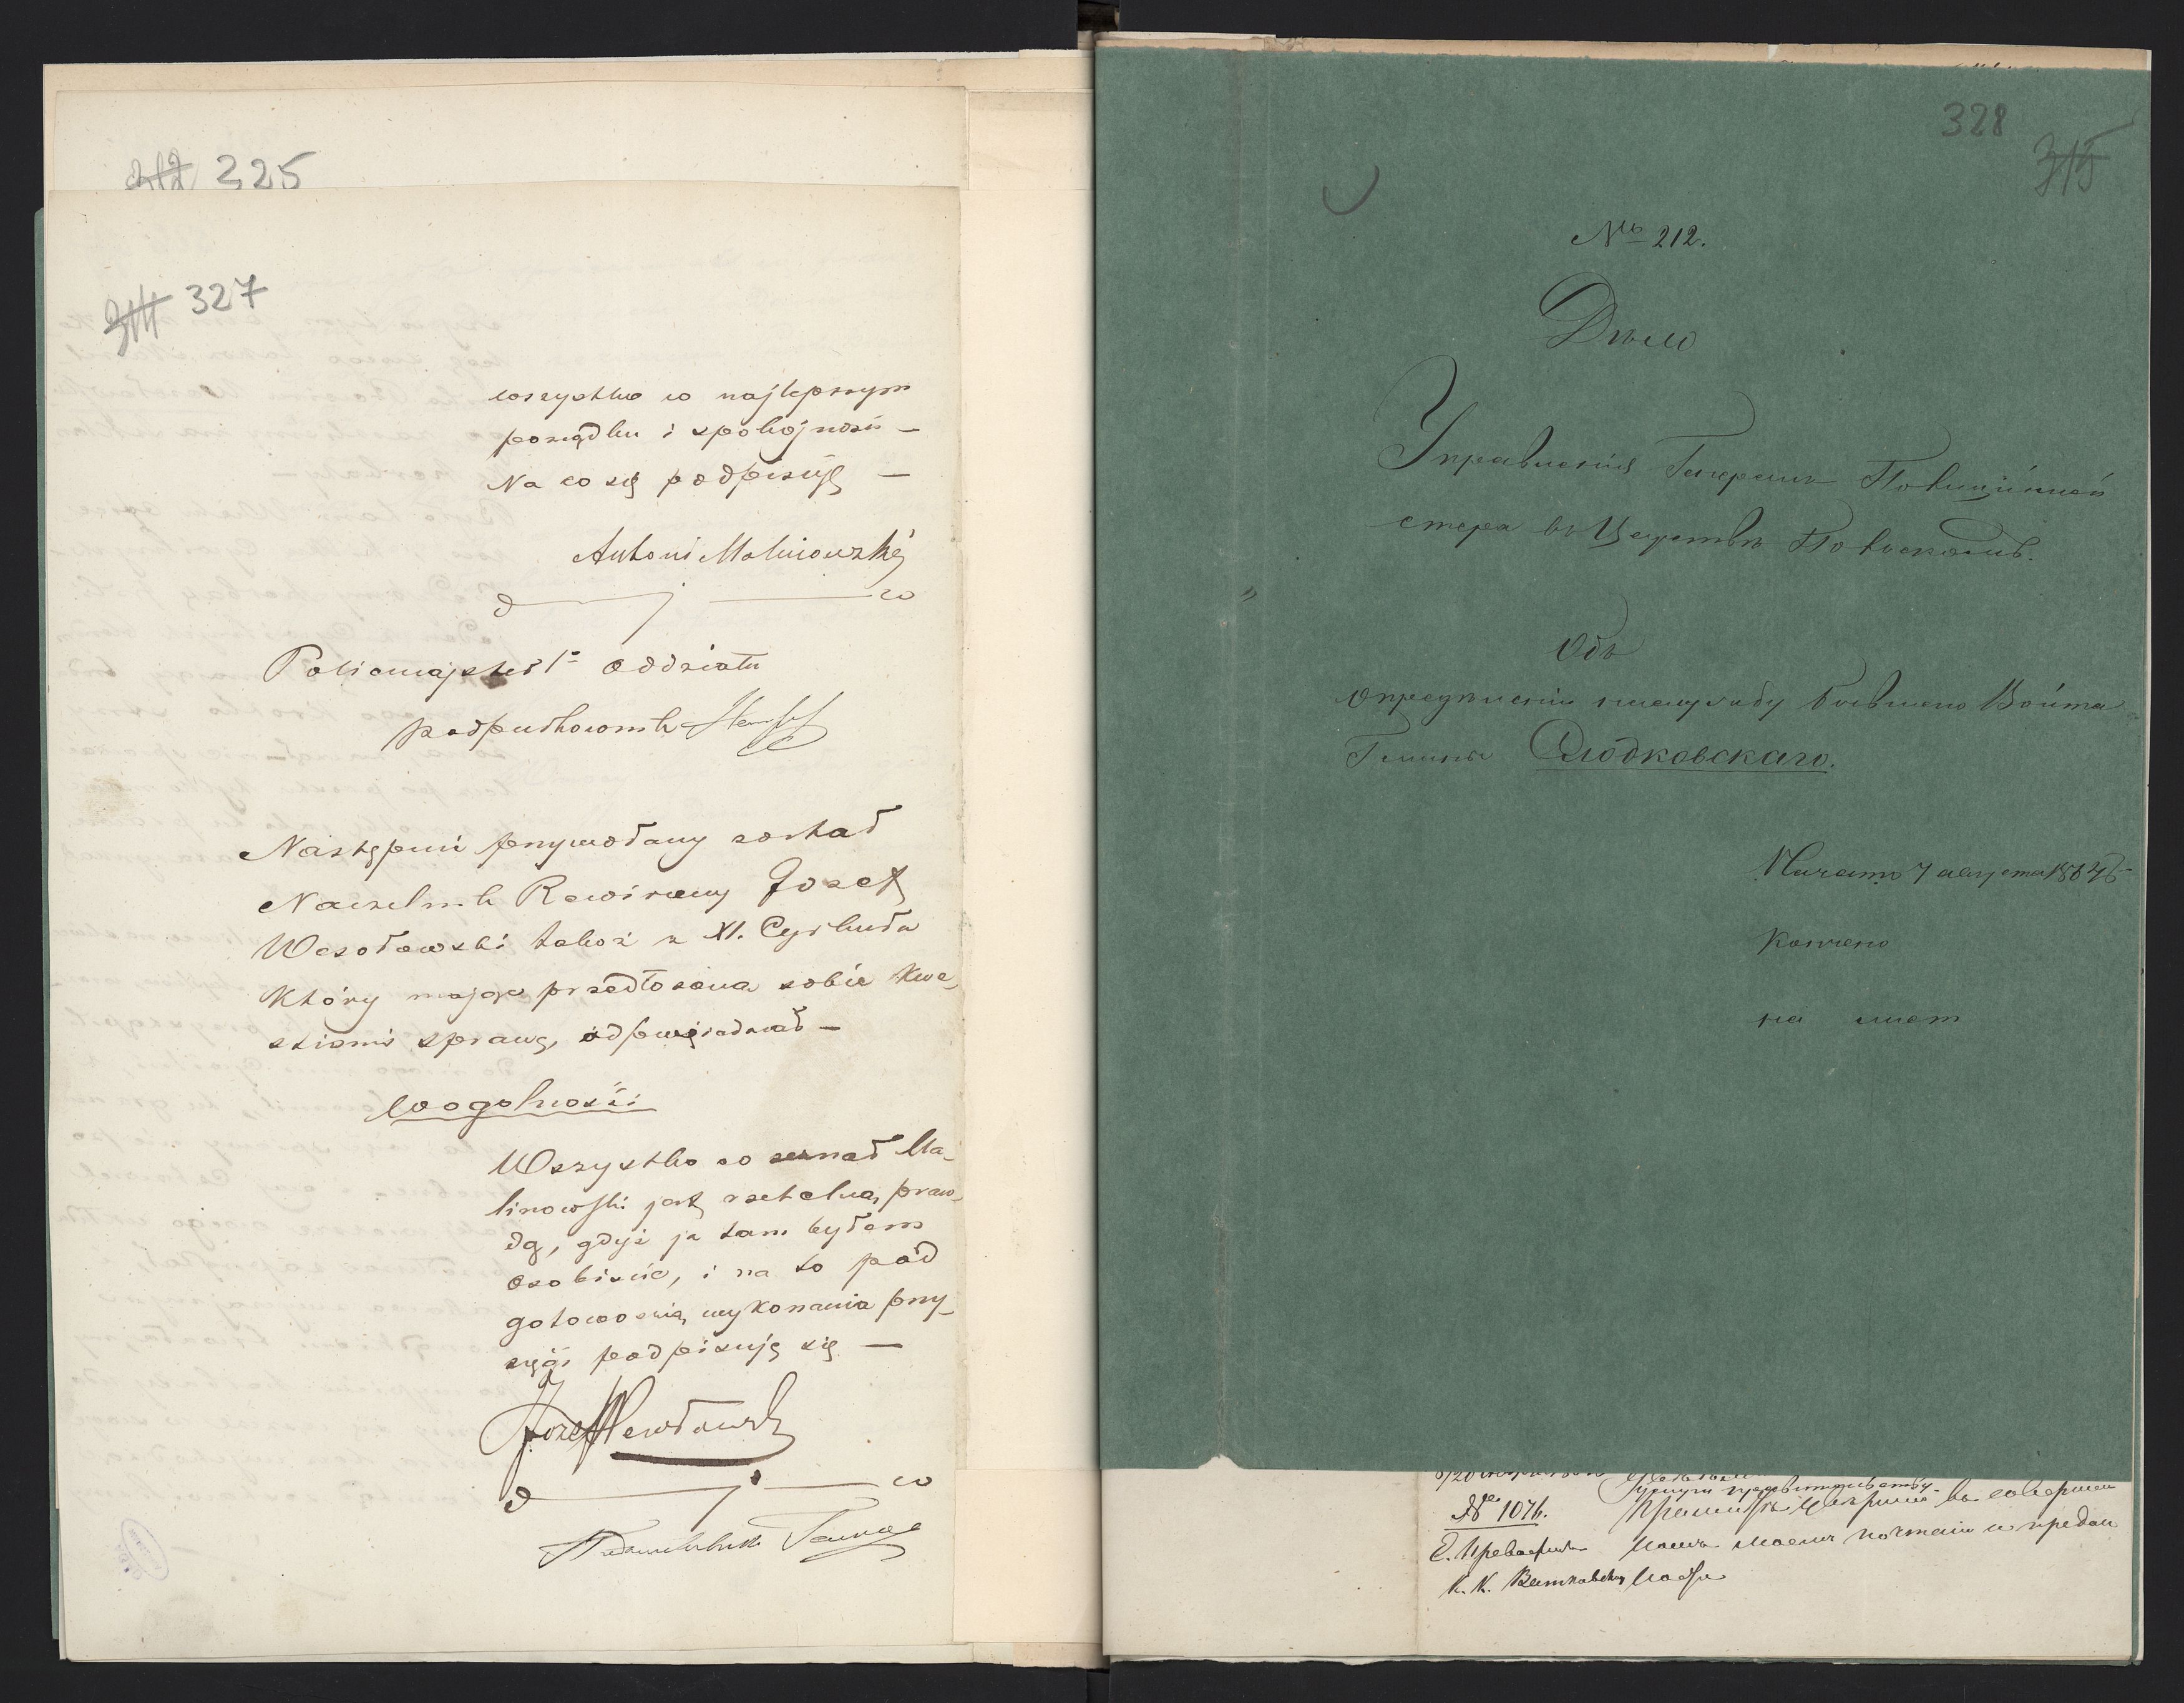 312 225
314 327
wszystko w najlepszym
porządku i spokojności —
Na co się podpisuję —
Antoni Malinowski
Policmajster 1º Oddziału
podpułkownik
Następnie przywołany został
Naczelnik Rewirowy Józef
Wesołowski także z XI. Cyrkułu
Który mając przedłożoną sobie kwe-
stiami sprawę, odpowiadał —
W ogolności
Wszystko co zeznał Ma-
linowski jest rzetelną praw-
dą, gdyż ja tam byłem
osobiście, i na to pod
gotowością wykonania przy-
sięgi podpisuję się —
Józef Wesołowski
328
315
№ 212.
Дѣло
Управленія Генералъ Полицiймей
стера въ Царствѣ Польскомъ.
Объ
опредѣленіи на службу бывшаго Войта
Гмины Слодковскаго.
Начато 7 августа 1864 г.
Кончено
на лист
№ 1076.
Примите увѣреніе въ совершен
моемъ почтеніи и предан
К. К. Витковскій